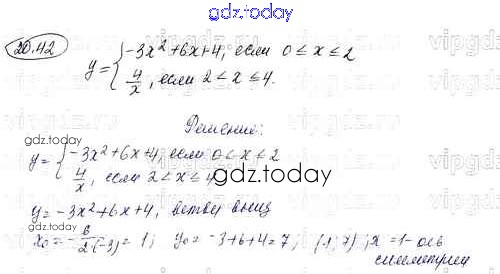 gdz.today
20.42
y = { -3x² + 6x + 4, если 0 ≤ x ≤ 2
4/x, если 2 < x ≤ 4.
Решение:
gdz.today
y = { -3x² + 6x + 4, если 0 < x < 2
4/x, если 2 < x ≤ 4
gdz.today
y = -3x² + 6x + 4, ветви вниз
x₀ = -6/2(-3) = 1; y₀ = -3+6+4=7; (1,7); x = 1 - ось
симметрии